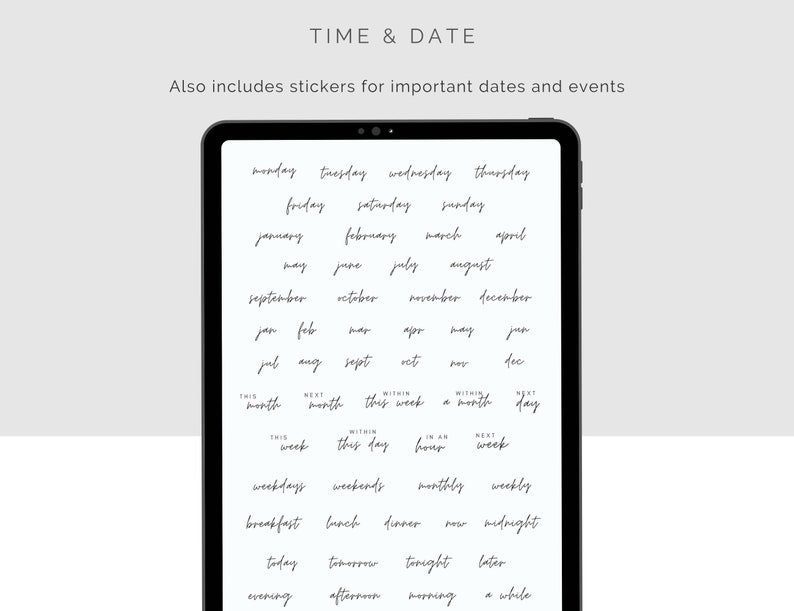 TIME & DATE
Also includes stickers for important dates and events
monday tuesday wednesday thursday
friday saturday sunday
january february march april
may june july august
september october november december
jan feb mar apr may jun
jul aug sept oct nov dec
THIS month NEXT month WITHIN this week WITHIN a month NEXT day
THIS week WITHIN this day IN AN hour NEXT week
weekdays weekends monthly weekly
breakfast lunch dinner now midnight
today tomorrow tonight later
evening afternoon morning a while